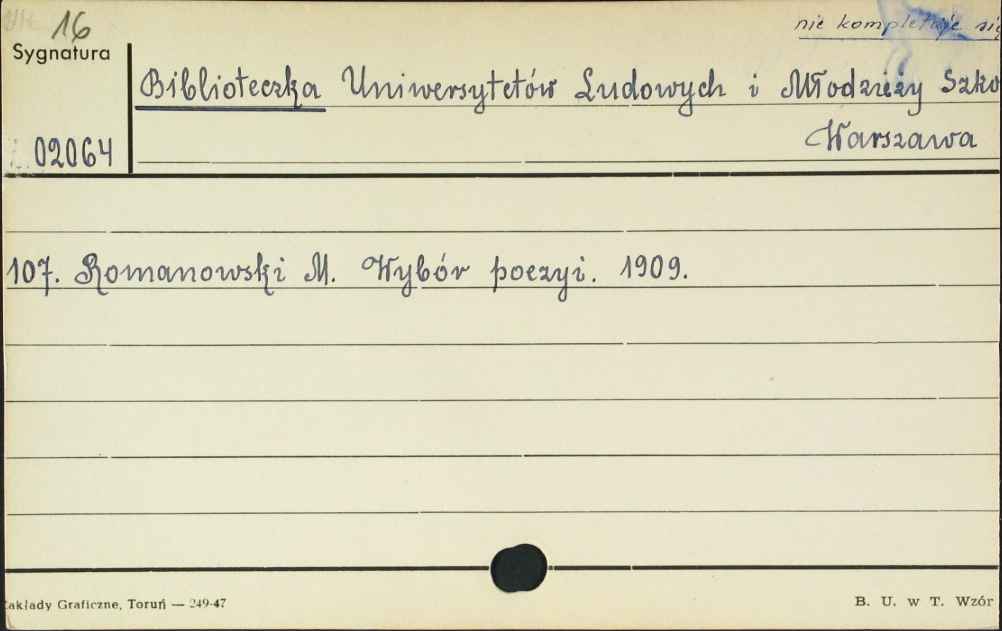 16
nie kompletuje się
Sygnatura
Biblioteczka Uniwersytetów Ludowych i Młodzieży Szko
Warszawa
02064
107. Romanowski M. Wybór poezyi. 1909.
Zakłady Graficzne, Toruń — 249-47
B. U. w T. Wzór